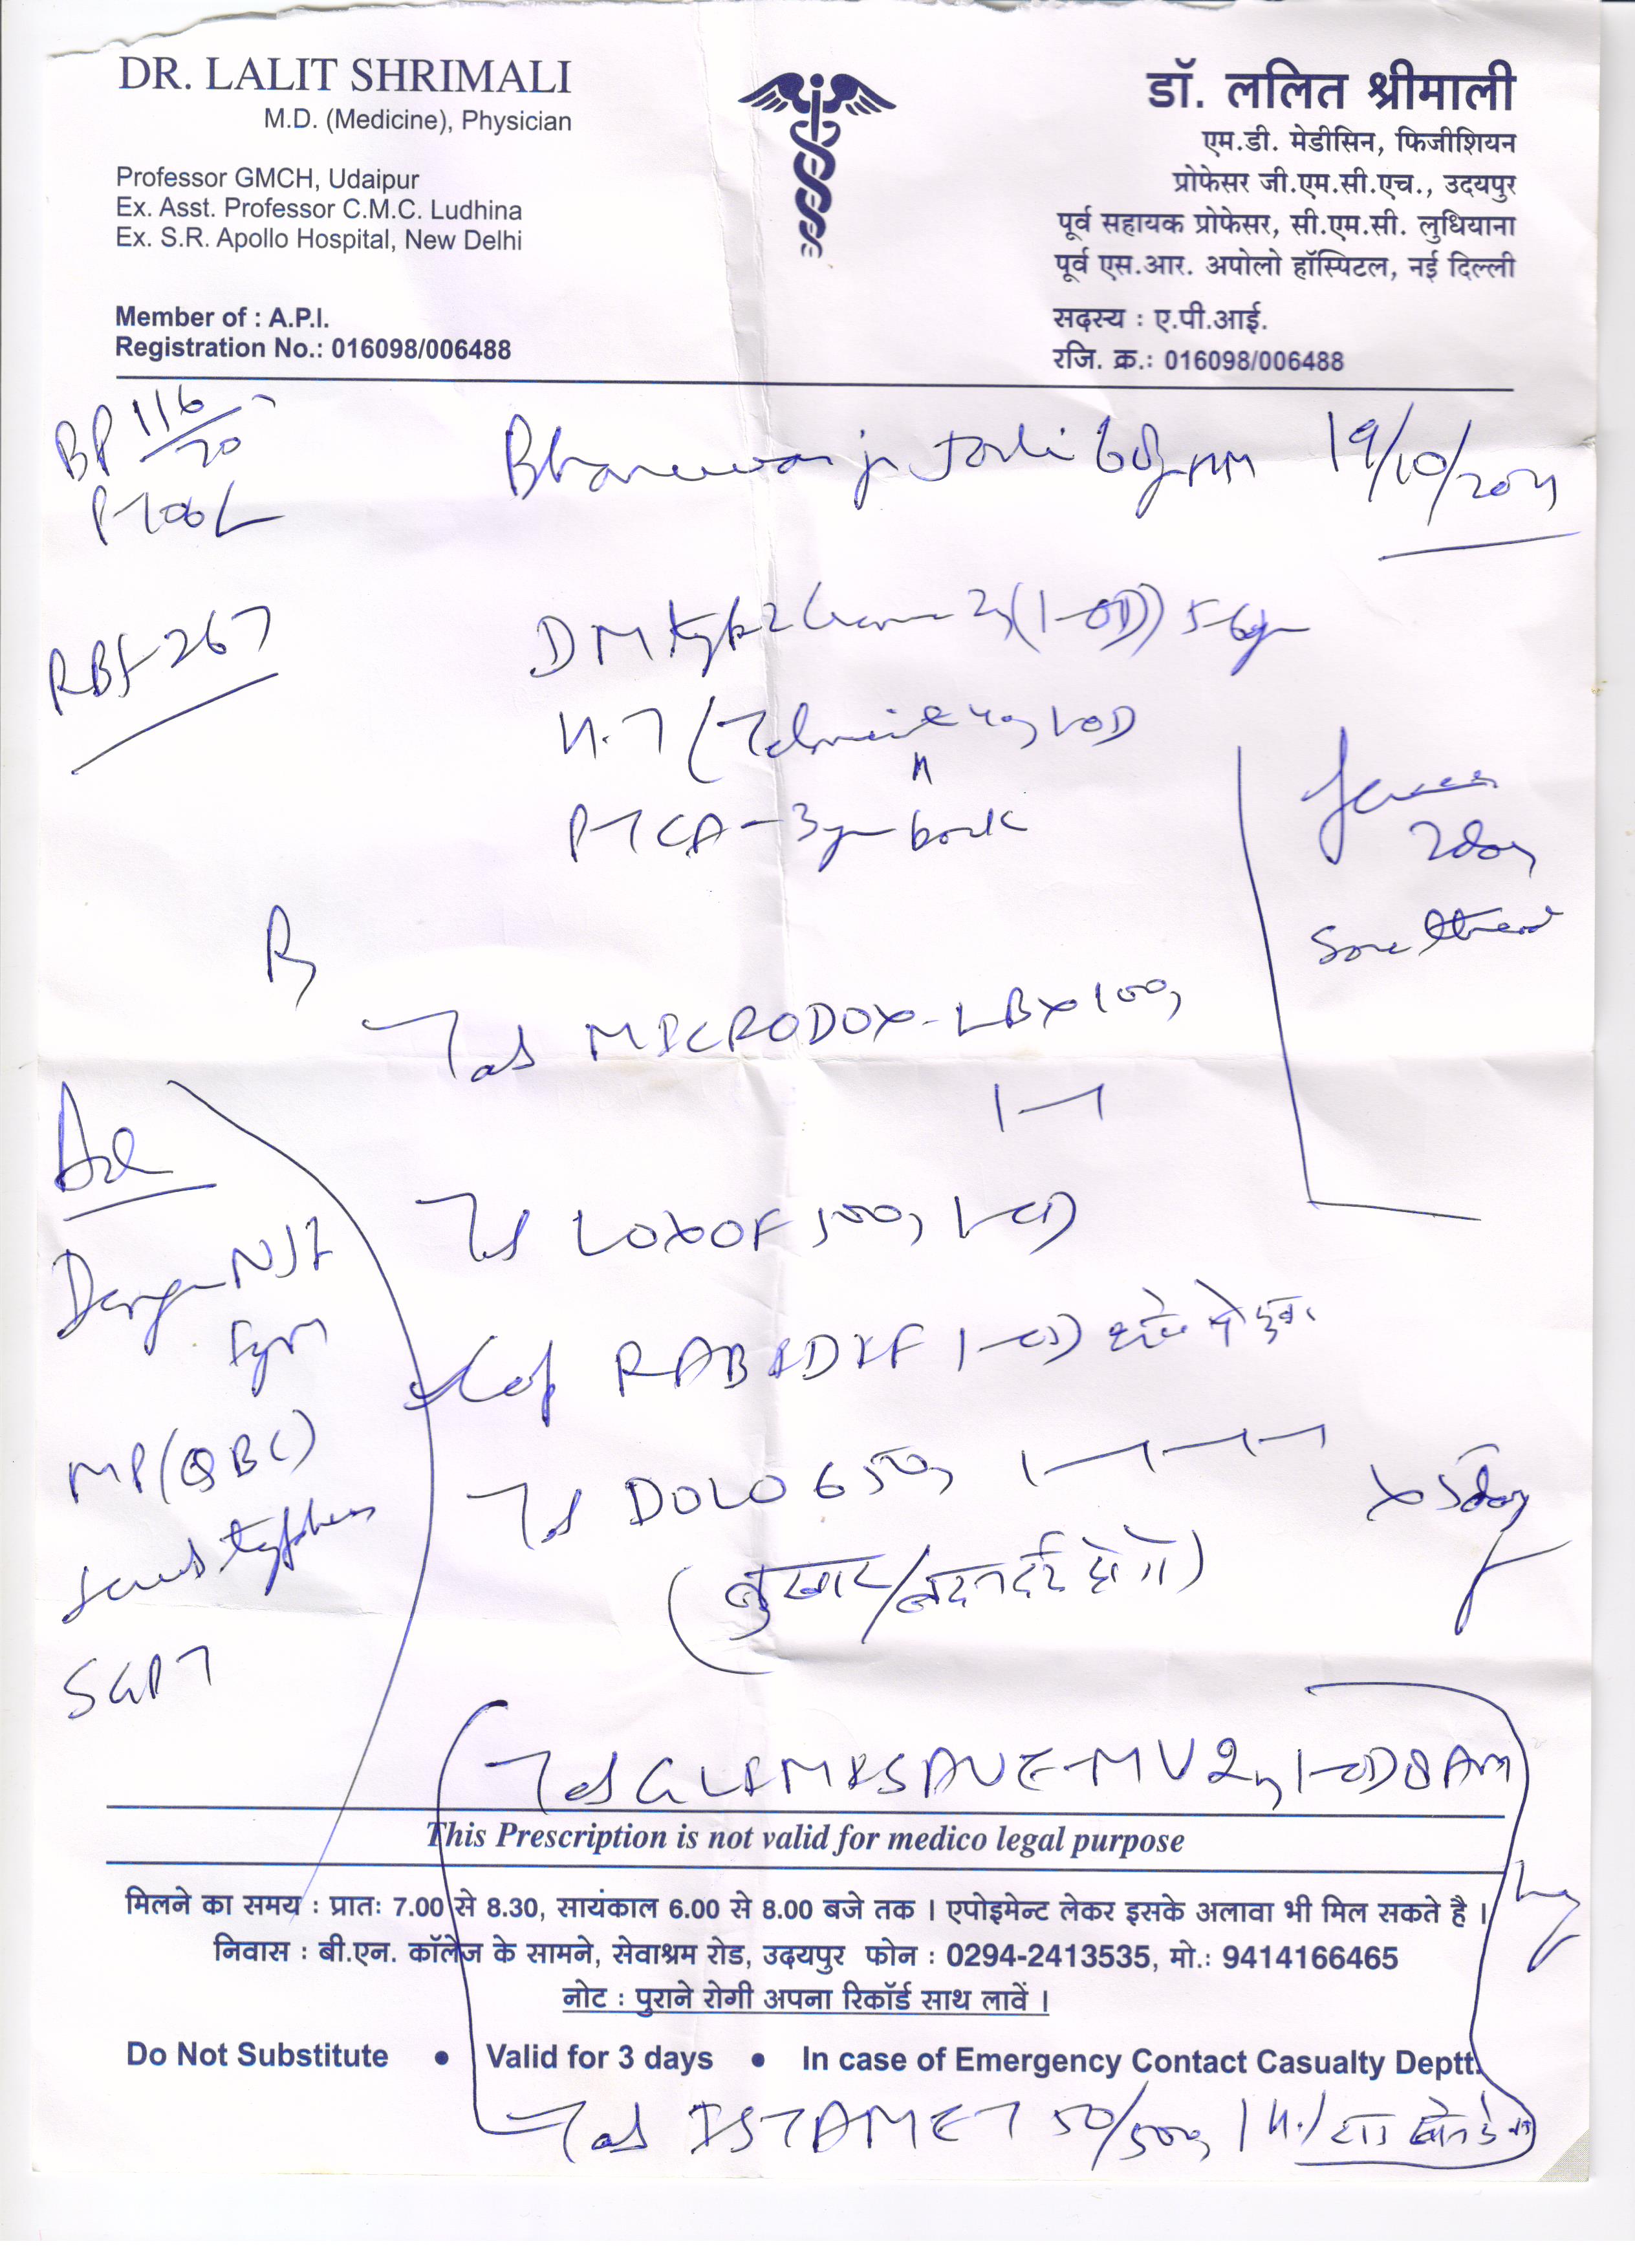 DR. LALIT SHRIMALI
M.D. (Medicine), Physician
Professor GMCH, Udaipur
Ex. Asst. Professor C.M.C. Ludhina
Ex. S.R. Apollo Hospital, New Delhi
Member of : A.P.I.
Registration No.: 016098/006488
डॉ. ललित श्रीमाली
एम.डी. मेडीसिन, फिजीशियन
प्रोफेसर जी.एम.सी.एच., उदयपुर
पूर्व सहायक प्रोफेसर, सी.एम.सी. लुधियाना
पूर्व एस.आर. अपोलो हॉस्पिटल, नई दिल्ली
सदस्य : ए.पी.आई.
रजि. क्र.: 016098/006488
BP 116/70
19/10/2021
RBS-267
DM type 2 (1-OD) 5-6yr
H.T (
PTCA-3yr back
2day
Sore throat
Tab MICRODOX-LBX 100
1-1
Adv
Tab LOXOF 500, 1-OD
Dengue NS1
IgM
Cap RABIDXF 1-OD
MP(QBC)
Tab DOLO 650, 1-1-1-1
x 5day
(बुखार/बदन दर्द होने)
SGPT
Tab GLIMISAVE-MV 2, 1-OD 8AM
This Prescription is not valid for medico legal purpose
मिलने का समय : प्रातः 7.00 से 8.30, सायंकाल 6.00 से 8.00 बजे तक । एपोइमेन्ट लेकर इसके अलावा भी मिल सकते है ।
निवास : बी.एन. कॉलेज के सामने, सेवाश्रम रोड, उदयपुर फोन : 0294-2413535, मो.: 9414166465
नोट : पुराने रोगी अपना रिकॉर्ड साथ लावें ।
Do Not Substitute • Valid for 3 days • In case of Emergency Contact Casualty Deptt.
Tab ISTAMET 50/500,